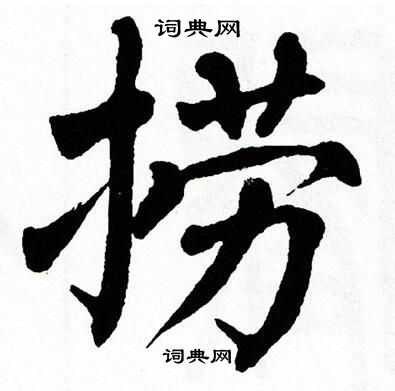 词典网
捞
词典网